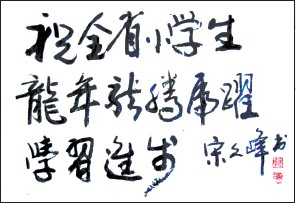 祝全省小学生
龍年龍腾虎躍
學習進步 宋峰书